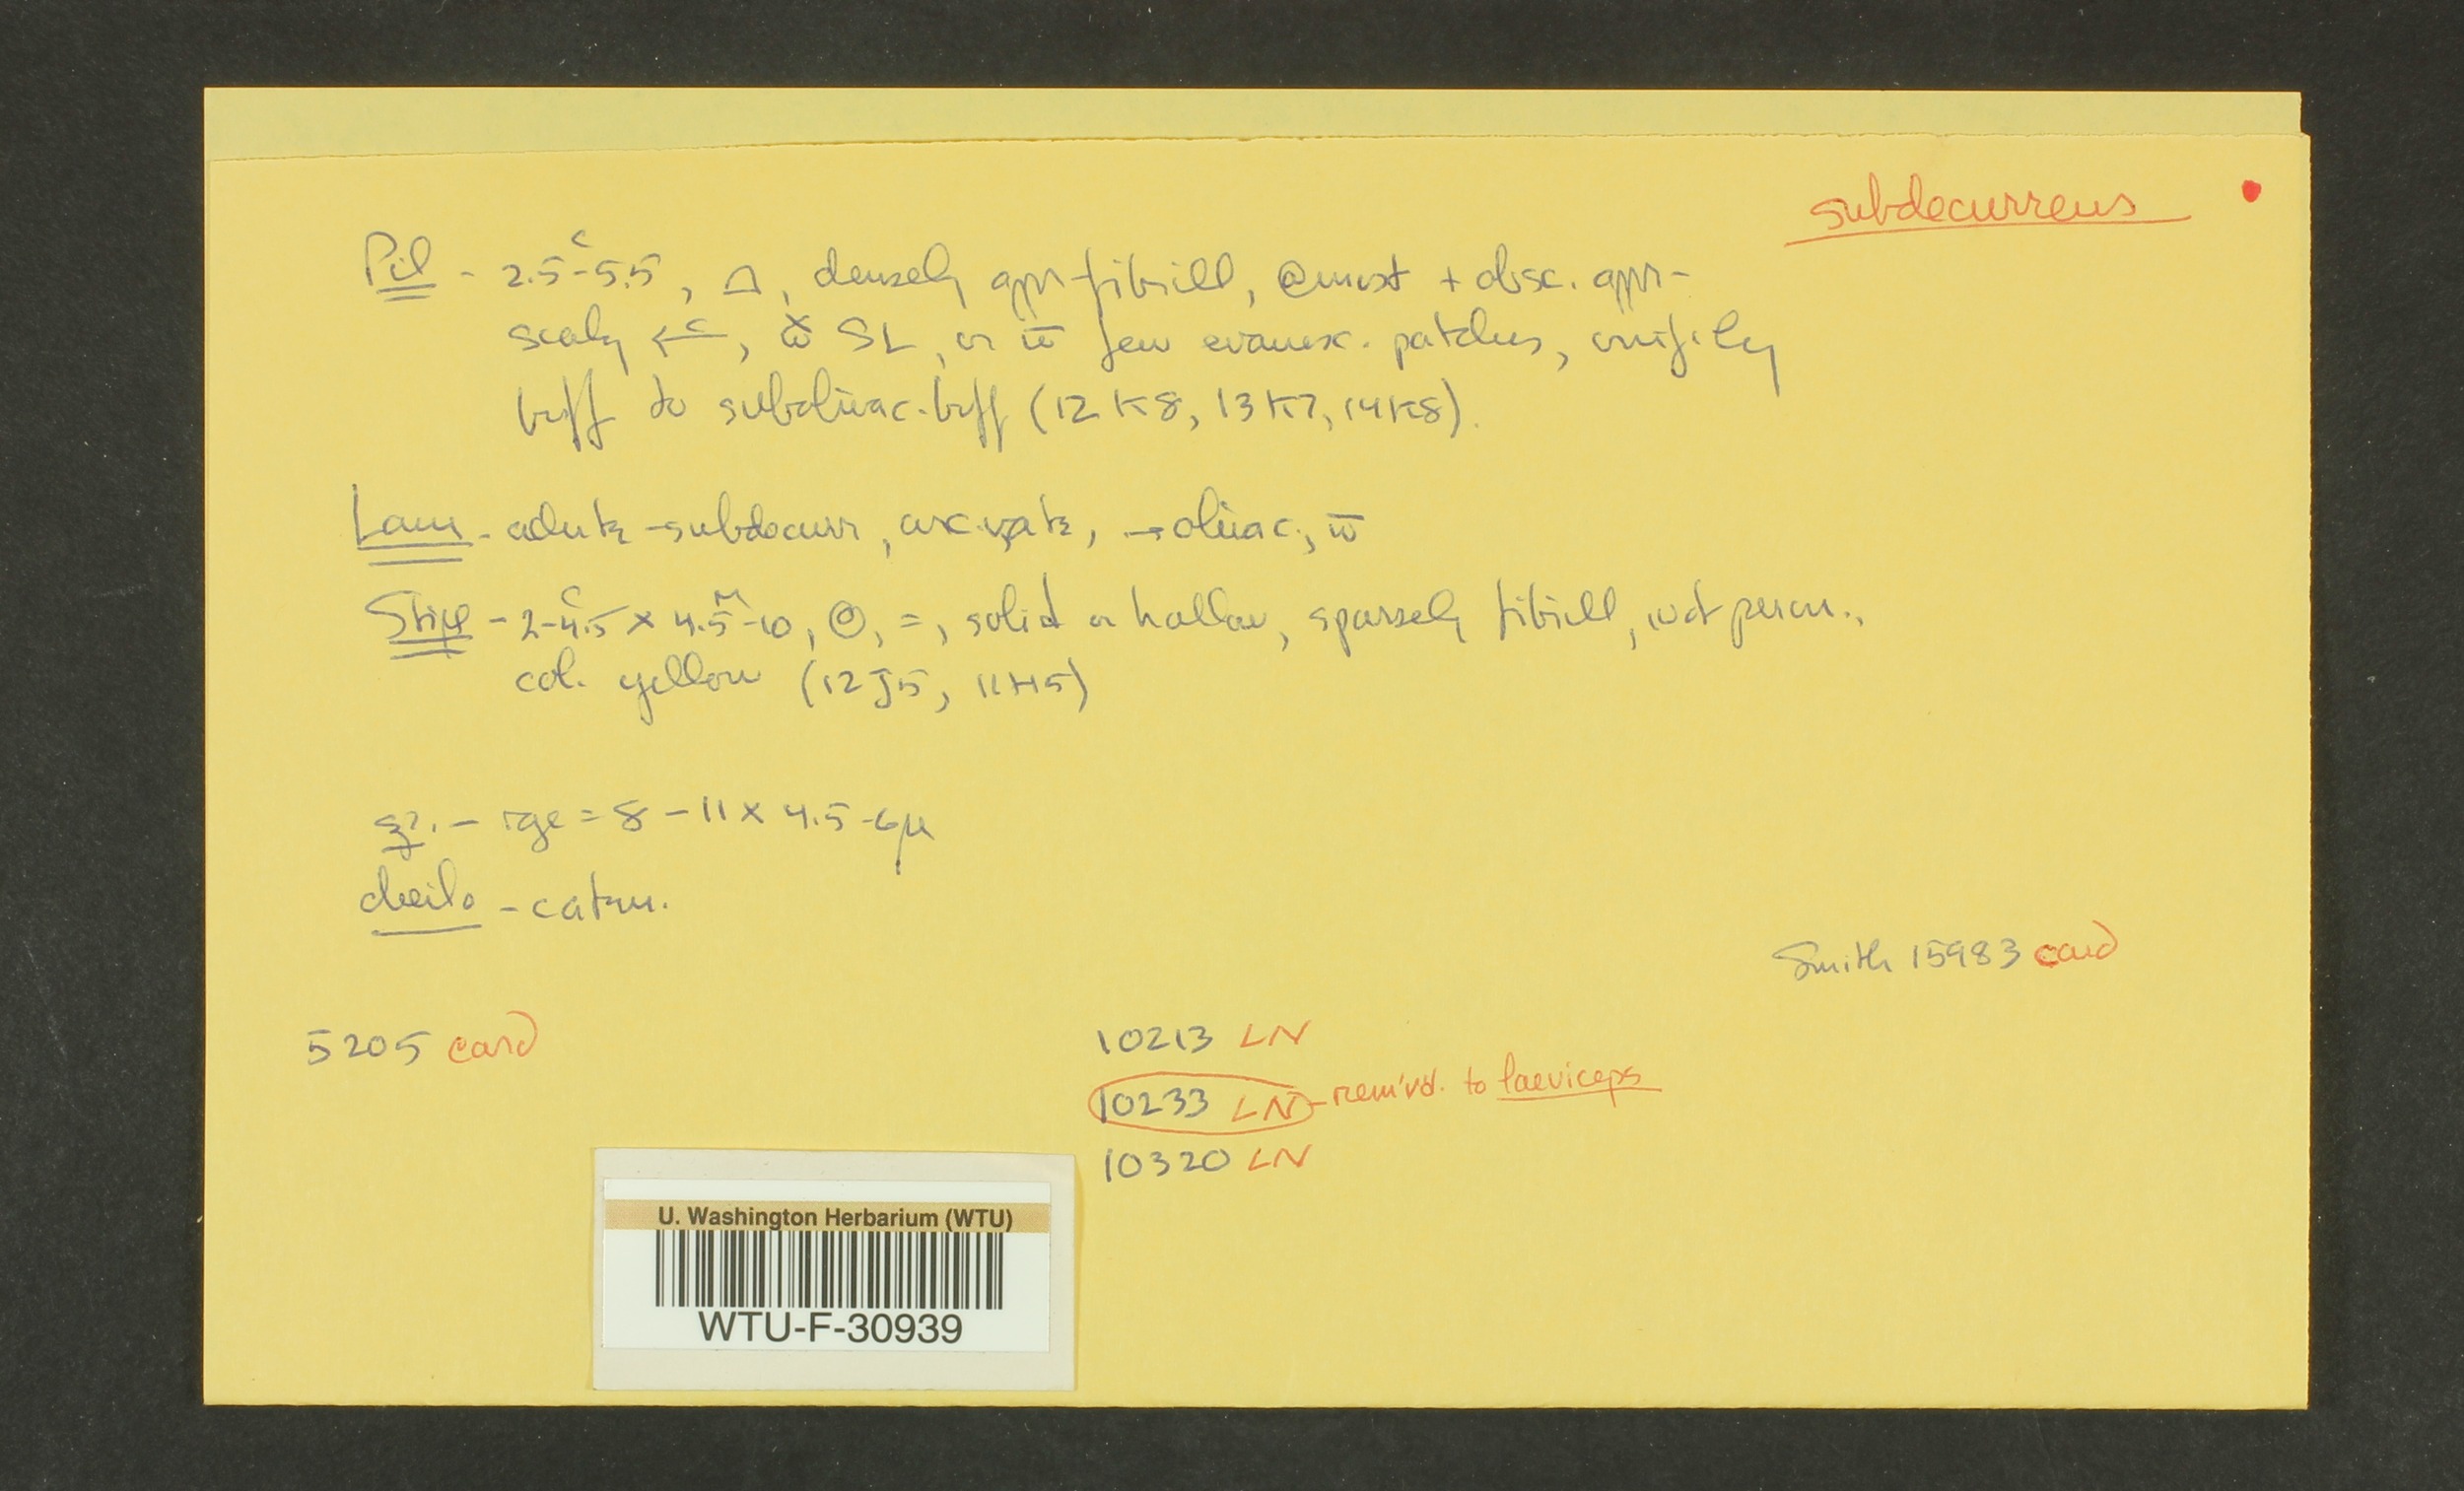 subdecurrens
Pil - 2.5-5.5 c, densely appr-fibrill, @ most + obsc. appr-
scaly, SL, or w̄ few evanesc. patches, unif'ly
buff to subolivac. buff (12K8, 13K7, 14K8).
Lam - adnate-subdecurr, arcuate, → olivac., w̄
Stipe - 2-4.5 c × 4.5-10 m, =, solid or hollow, sparsely fibrill, not peron.,
col. yellow (12J5, 11H5)
sp. - rge = 8-11 x 4.5-6µ
cheilo - caten.
Smith 15983 card
5205 card
10213 LN
10233 LN - rem'vd. to laeviceps
10320 LN
U. Washington Herbarium (WTU)
WTU-F-30939